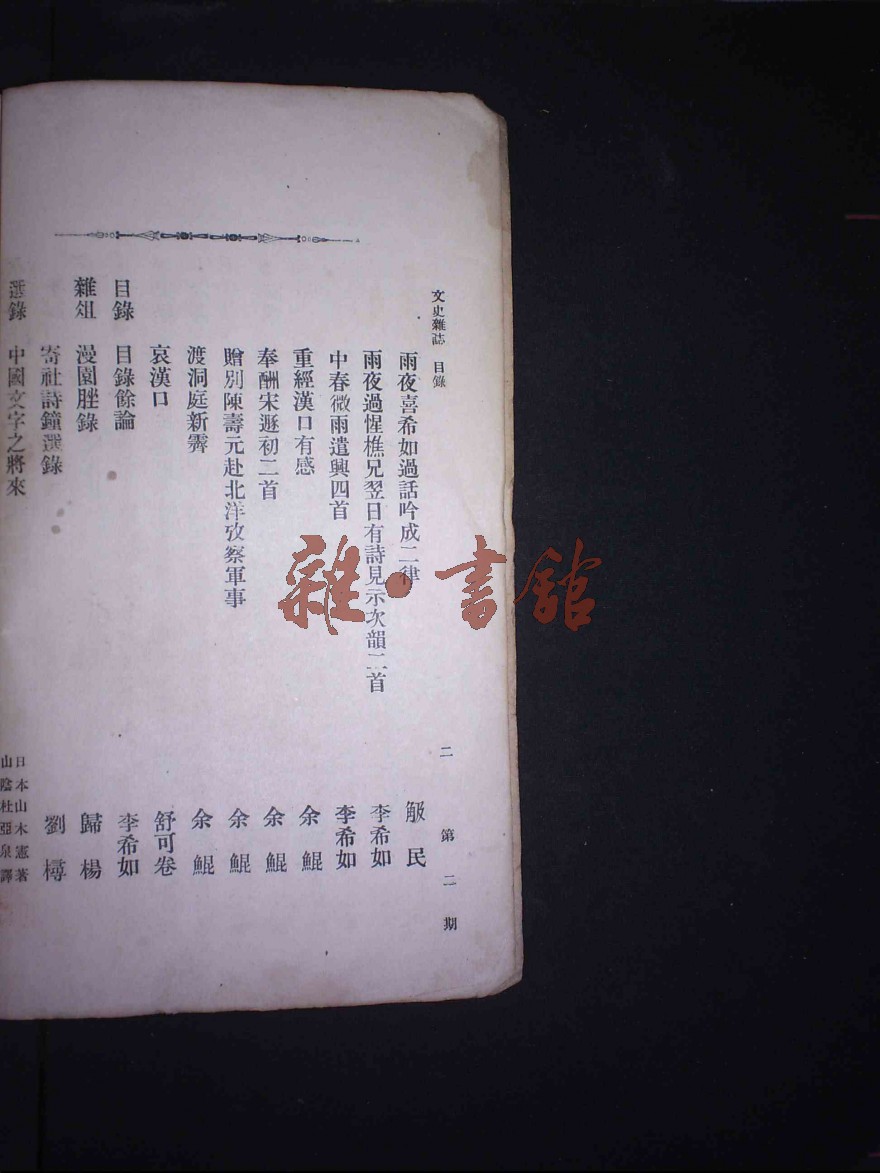 文史雜誌 目錄 二 第二期
雨夜喜希如過話吟成二律 觙民
雨夜過惺樵兄翌日有詩見示次韻二首 李希如
中春微雨遣興四首 李希如
重經漢口有感 余鯤
奉酬宋遯初二首 余鯤
贈別陳壽元赴北洋攷察軍事 余鯤
渡洞庭新霽 余鯤
哀漢口 舒可卷
目錄 目錄餘論 李希如
雜俎 漫園脞錄 歸楊
寄社詩鐘選錄 劉樳
選錄 中國文字之將來 日本山木憲著
山陰杜亞泉譯
雜·書館